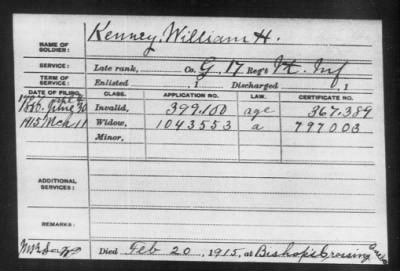 Kenney, William H.
NAME OF SOLDIER:
SERVICE: Late rank, Co. G, 17 Reg't Vt. Inf
TERM OF SERVICE: Enlisted , 1 Discharged , 1
DATE OF FILING. CLASS. APPLICATION NO. LAW. CERTIFICATE NO.
1880. June 30 Invalid, 399.100 age 367.389
1915 Mch 11 Widow, 1043553 a 797003
Minor,
ADDITIONAL SERVICES:
REMARKS:
Died Feb 20, 1915, at Bishop's Crossing